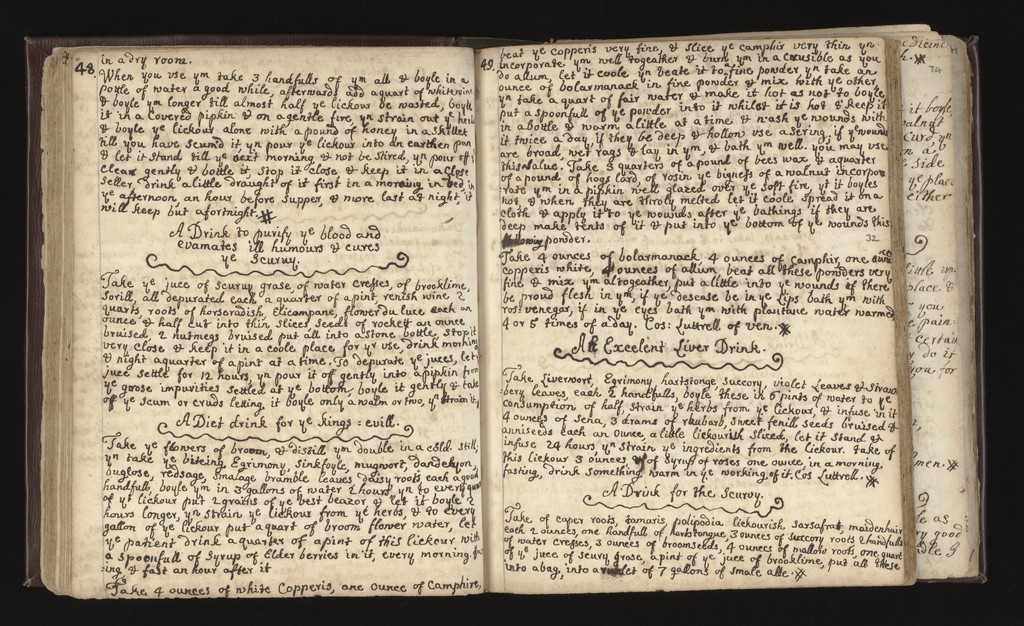 48
in a dry room.
When you vse ym take 3 handfulls of ym all & boyle in a
pottle of water a good while, afterwards add aquart of whitewine
& boyle ym longer till almost half ye lickour be wasted, boyle
it in a Covered pipkin & on agentle fire yn strain out ye herbs
& boyle ye lickour alone with apound of honey in a skillet
till you have scumd it yn pour ye lickour into an earthen pan
& let it stand till ye next morning & not be stired, yn pour off ye
Clear gently & bottle it, stop it close & keep it in a Close
Seller, drink a little draught of it first in a morning in bed in
ye afternoon, an hour before Supper, & more last at night, it
will keep but afortnight.
A Drink to purify ye blood and
evamates ill humours & cures
ye Scurvy.
Take ye juce of scurvy grase, of water cresses, of brooklime,
Sorill, all depurated each a quarter of apint, renish wine 2
quarts, roots of horseradish, Elicampane, flower du luce each an
ounce & half cut into thin slices seeds of rockett an ounce
bruised, 2 nutmegs bruised put all into a stone bottle, stop it
very close & keep it in a coole place for yr vse, drink morning
& night aquarter of apint at a time. To depurate ye juces, let ye
juce settle for 12 hours, yn pour it off gently into apipkin from
ye goose impurities setled at ye bottom, boyle it gently & take
off ye scum or cruds letting it boyle only a walm or two, yn strain it,
A Diet drink for ye kings = evill.
Take ye flowers of broom, & distill ym double in a cold still,
yn take ye biteing, Egrimony, Sinkfoyle, mugwort, dandelyon,
buglose, redsage, smalage bramble leaves daisy roots each agood
handfull, boyle ym in 3 gallons of water 2 hours, yn to every quart
of yt lickour put 2 grains of ye best beazor & let it boyle 2
hours longer, yn strain ye lickour from ye herbs, & to every
gallon of ye lickour put aquart of broom flower water, let
ye patient drink aquarter of apint of this lickour with
a spoonfull of syrup of Elder berries in it, every morning,
ing, & fast an hour after it
Take 4 ounces of white Copperis, one ounce of Camphire,
49
beat ye copperis very fine, & slice ye camphir very thin yn
incorporate ym well together & burn ym in a crusible as you
do allum, let it coole yn beate it to fine powder, yn take an
ounce of bolarmanack in fine powder & mix with ye other,
yn take a quart of fair water & make it hot as not to boyle
put a spoonfull of ye powder into it whilst it is hot & keep it
in a bottle & warm a little at a time, & wash ye wounds with
it twice a day, if they be deep & hollow vse a sering, if ye wounds
are broad, wet rags & lay in ym, & bath ym well. you may use
this salue. Take 3 quarters of a pound of bees wax & a quarter
of a pound of hogs lard, of rosin ye bigness of a walnut incorpo=
rate ym in a pipkin well glazed over ye soft fire, yt it boyles
not & when they are throly melted let it coole spread it on a
cloth & apply it to ye wounds after ye bathings if they are
deep make tents of it & put into ye bottom of ye wounds this
powder.
32
Take 4 ounces of bolarmanack 4 ounces of camphir, one ounce
copperis white, 4 ounces of allum beat all these ponders very
fine & mix ym altogether, put a little into ye wounds if there
be proud flesh in ym, if ye desease be in ye Lips bath ym with
rost venegar, if in ye eyes bath ym with plantane water warmed
4 or 5 times of a day. Cos: Luttrell of Ven.
An Excelent Liver Drink.
Take Liverwort, Egrimony, hartstonge succory, violet Leaves & straw=
bery leaves, each 2 handfulls, boyle these in 6 pints of water to ye
consumption of half, strain ye herbs from ye lickour, & infuse in it
4 ounces of sena, 3 drams of rhubarb, sweet fenill seeds bruised &
anniseeds each an ounce, a little lickourish sliced, let it stand &
infuse 24 hours yn strain ye ingredients from the lickour. take of
this lickour 3 ounces of syrup of roses one ounce, in a morning,
fasting, drink something warm in ye working of it. Cos Luttrell.
A Drink for the Scurvy.
Take of caper roots, tamaris, polipodia lickourish, sarsafras, maidenhair
each 2 ounces, one handfull of hartstongue, 3 ounces of succory roots 2 handfulls
of water cresses, 3 ounces of broomseeds, 4 ounces of mallow roots, one quart
of ye juce of scurvy grose, apint of ye juce of brooklime, put all these
into a bag, into a runlet of 7 gallons of smale alle.